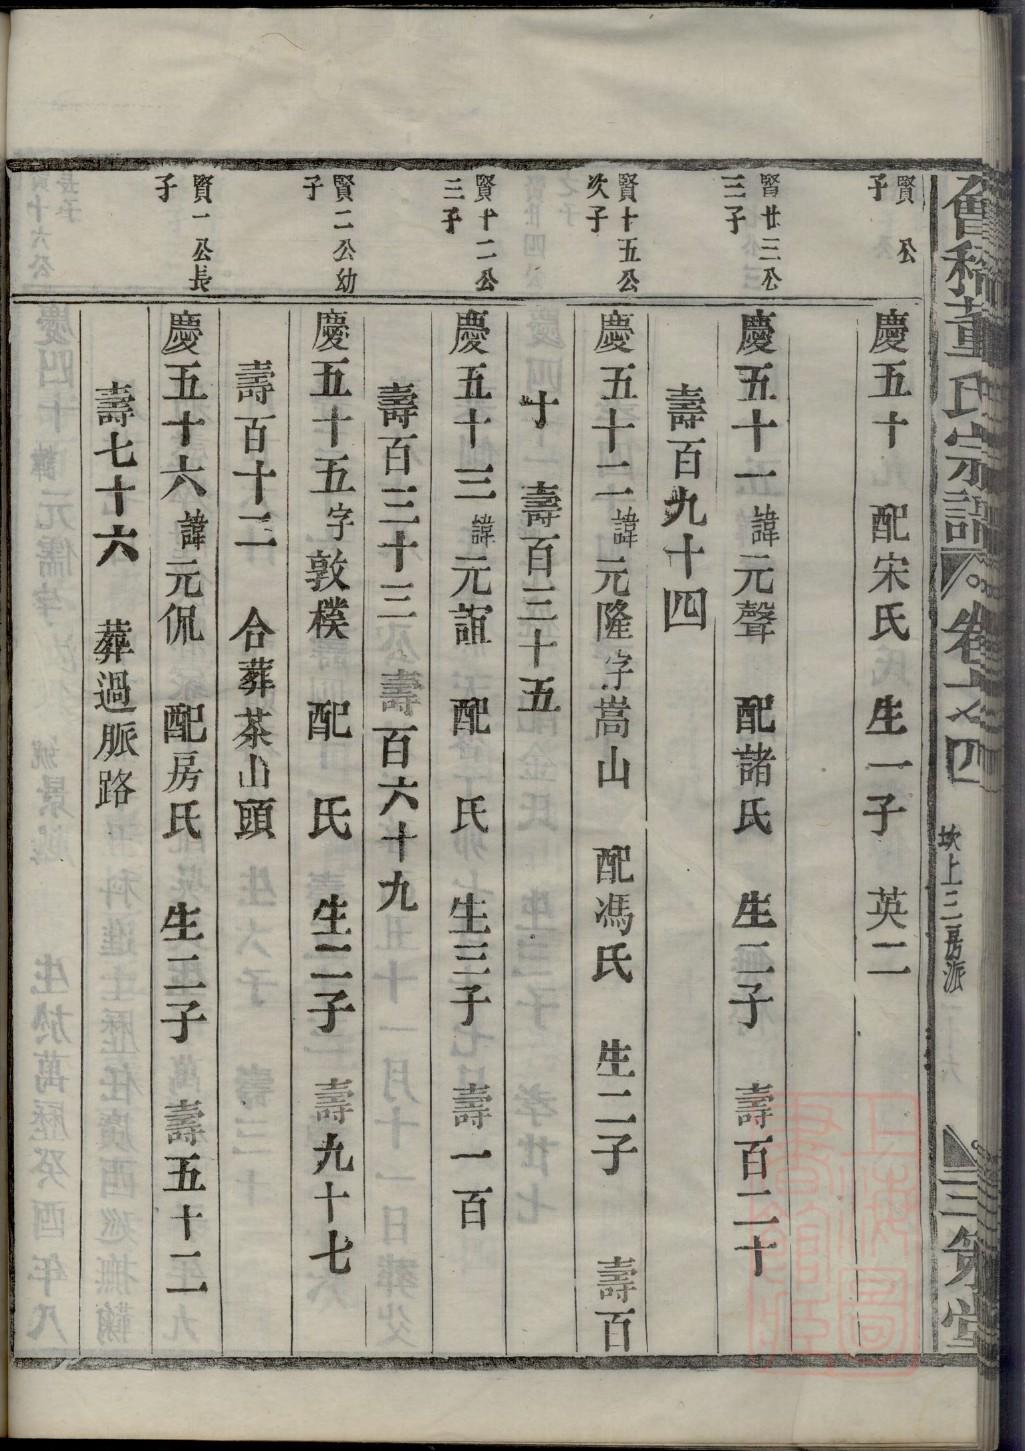 會稽董氏宗譜 卷之四 坎上三房派 三策堂
賢 公
子
慶五十 配宋氏 生一子 英二
賢廿三公
三子
慶五十一諱元聲 配諸氏 生二子 壽百二十
壽百九十四
賢十五公
次子
慶五十二諱元隆字嵩山 配馮氏 生二子 壽百
十 壽百三十五
賢十二公
三子
慶五十三諱元誼 配 氏 生三子 壽一百
壽百三十三 壽百六十九
賢二公幼
子
慶五十五字敦樸 配 氏 生二子 壽九十七
壽百十二 合葬茶山頭
賢一公長
子
慶五十六諱元侃 配房氏 生二子 壽五十二
壽七十六 葬過脈路